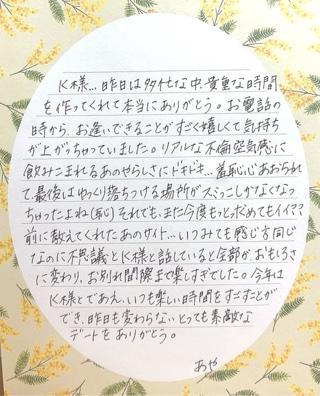 K様…昨日は多忙な中、貴重な時間
を作ってくれて本当にありがとう。お電話の
時から、お逢いできることがすごく嬉しくて気持ち
が上がっちゃていました。リアルな不倫空気感に
飲みこまれるあのやらしさにドキドキ…羞恥心あおられ
て最後はゆっくり落ちつける場所がスミっこしかなくなっ
ちゃったよね(恥)それでも、また今度もっと求めてもイイ??
前に教えてくれたあのサイト…いつみても感じ方同じ
なのに不思議とK様と話していると全部がおもしろさ
に変わり、お別れ間際まで楽しすぎでした。今年は
K様とであえ、いつも楽しい時間をすごすことが
でき、昨日も変わらないとっても素敵な
デートをありがとう。
あや